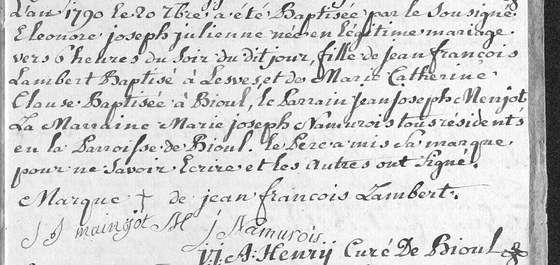 L'an 1790 le 20 7bre a été Baptisée par le soussigné
Eleonore joseph julienne née en légitime mariage
vers 6 heures du soir du dit jour, fille de Jean françois
Lambert Baptisé a Lesves, et de Marie Catherine
Clause Baptisée à Bioul, le Parrain Jean joseph Menjot
La Marraine Marie joseph Namurois tous résidents
en la Parroisse de Bioul. le Pere a mis sa marque
pour ne savoir Ecrire et les autres ont signé.
Marque † de jean françois Lambert.
J J mainjot M j Namurois
A: Henry Curé De Bioul